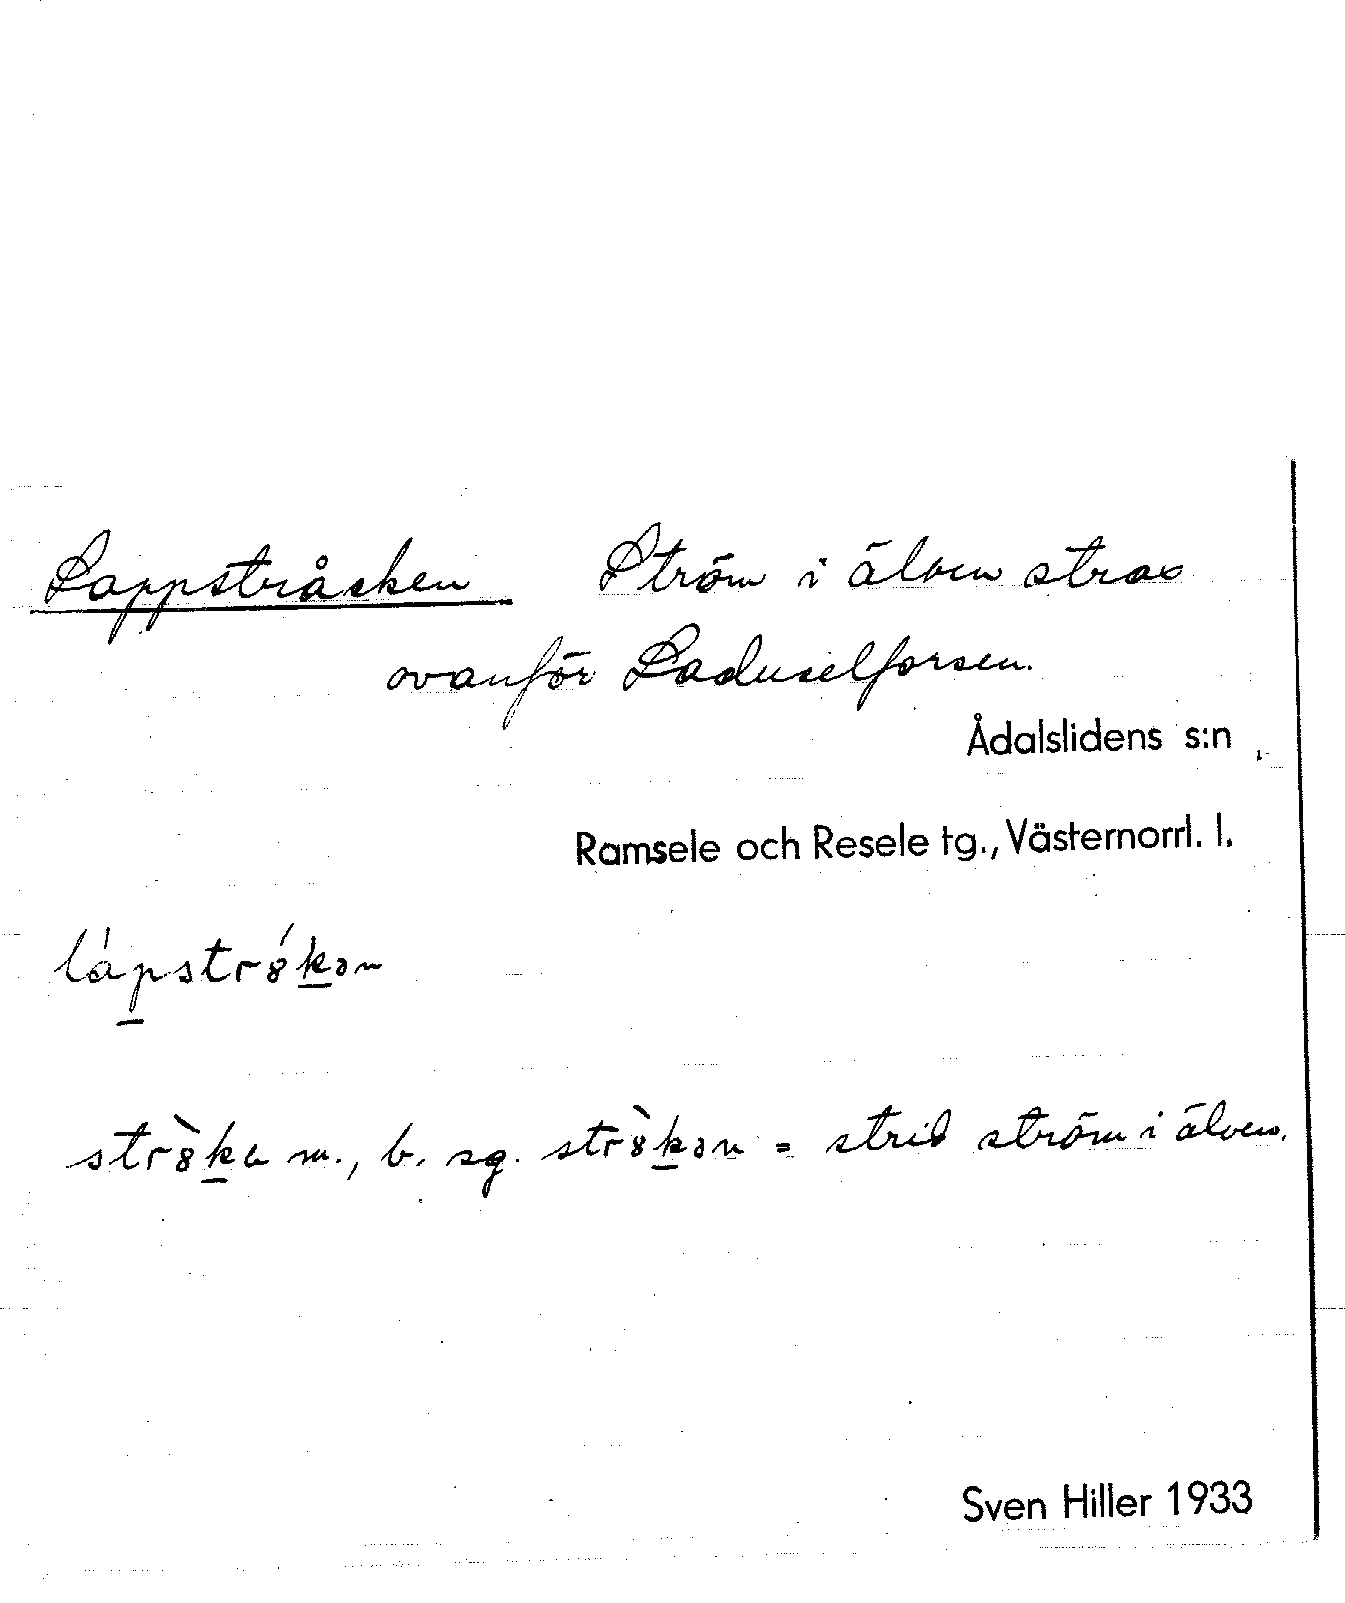 Lappstråcken Ström i älven strax
ovanför Laduselforsen.
Ådalslidens s:n
Ramsele och Resele tg., Västernorrl. l.
lápstr8́kən
str8̀ka m., b. sg. str8̀kən = strid ström i älven.
Sven Hiller 1933